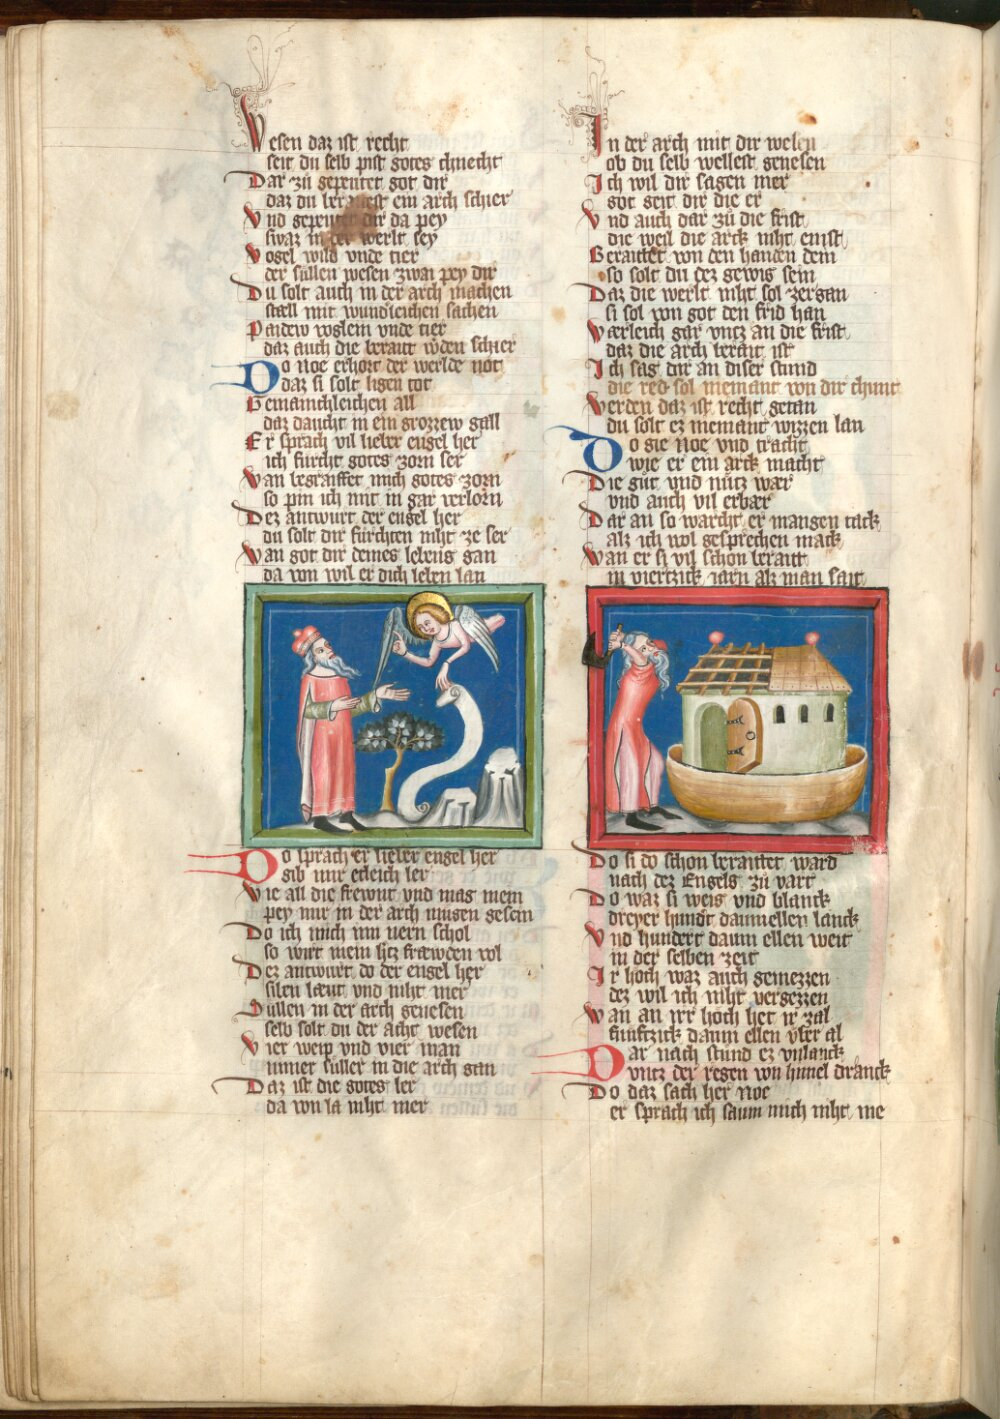 Wesen daz ist recht
seit du selb pist gotes chnecht
Dar zů gepeutet got dir
daz du beraitest ein arch schier
Vnd gepeutet dir da pey
swaz in der werlt sey
Vogel wild vnde tier
der sullen wesen zwai pey dir
Du solt auch in der arch machen
stæll mit wundleichen sachen
Paidew voglein vnde tier
daz auch die berait wͤden schier
Do noe erhort der werlde not
daz si solt ligen tot
Gemainchleichen all
daz daucht in ein grozzew gall
Er sprach vil lieber engel her
ich furcht gotes zorn ser
Wan begraiffet mich gotes zorn
so pin ich mit in gar verlorn
Dez antwurt der engel her
du solt dir fürchten niht ze ser
Wan got dir deines lebens gan
da von wil er dich leben lan
Do sprach er lieber engel her
gib mir etleich ler
Wie all die frewnt vnd mag mein
pey mir in der arch mugen gesein
Do ich mich inn nern schol
so wirt mein htz fræwden vol
Dez antwurt do der engel her
silen læut vnd niht mer
Sullen in der arch genesen
selb solt du der acht wesen
Vier weip vnd vier man
nimer süller in die arch gan
Daz ist die gotes ler
da von la niht mer
In der arch mit dir wesen
ob du selb wellest genesen
Ich wil dir sagen mer
got geit dir die er
Vnd auch dar zů die frist
die weil die arck niht enist
Beraittet von den handen dein
so solt du dez gewis sein
Daz die werlt niht sol zergan
si sol von got den frid han
Værleich gar vntz an die frist
daz die arch berait ist
Ich sag dir an diser stund
die red sol niemant von dir chunt
Werden daz ist recht getan
du solt ez niemant wizzen lan
Do gie noe vnd tracht
wie er ein arck macht
Die gůt vnd nütz wær
vnd auch vil erbær
Dar an so warcht er mangen tack
als ich wol gesprechen mack
Wan er si vil schon berait
in viertzick iarn als man sait
Do si do schon beraittet ward
nach dez Engels zů vart
Do waz si weis vnd blanck
dreyer hundt daumellen lanck
Vnd hundert daum ellen weit
in der selben zeit
Ir hoch waz auch gemezzen
dez wil ich niht vergezzen
Wan an irr hoch het ir zal
fünftzick daum ellen vber al
Dar nach stund ez vnlanck
vntz der regen von himel dranck
Do daz sach her noe
er sprach ich saum mich niht me